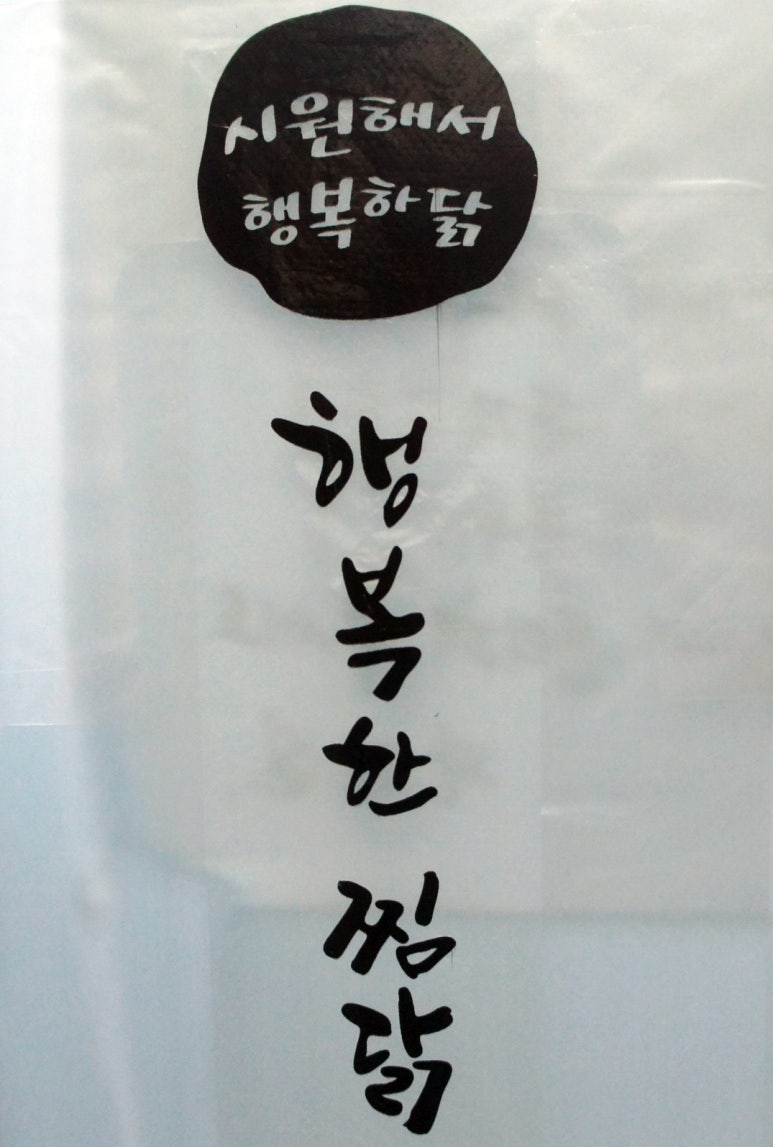 시원해서
행복하닭
행복한 찜닭